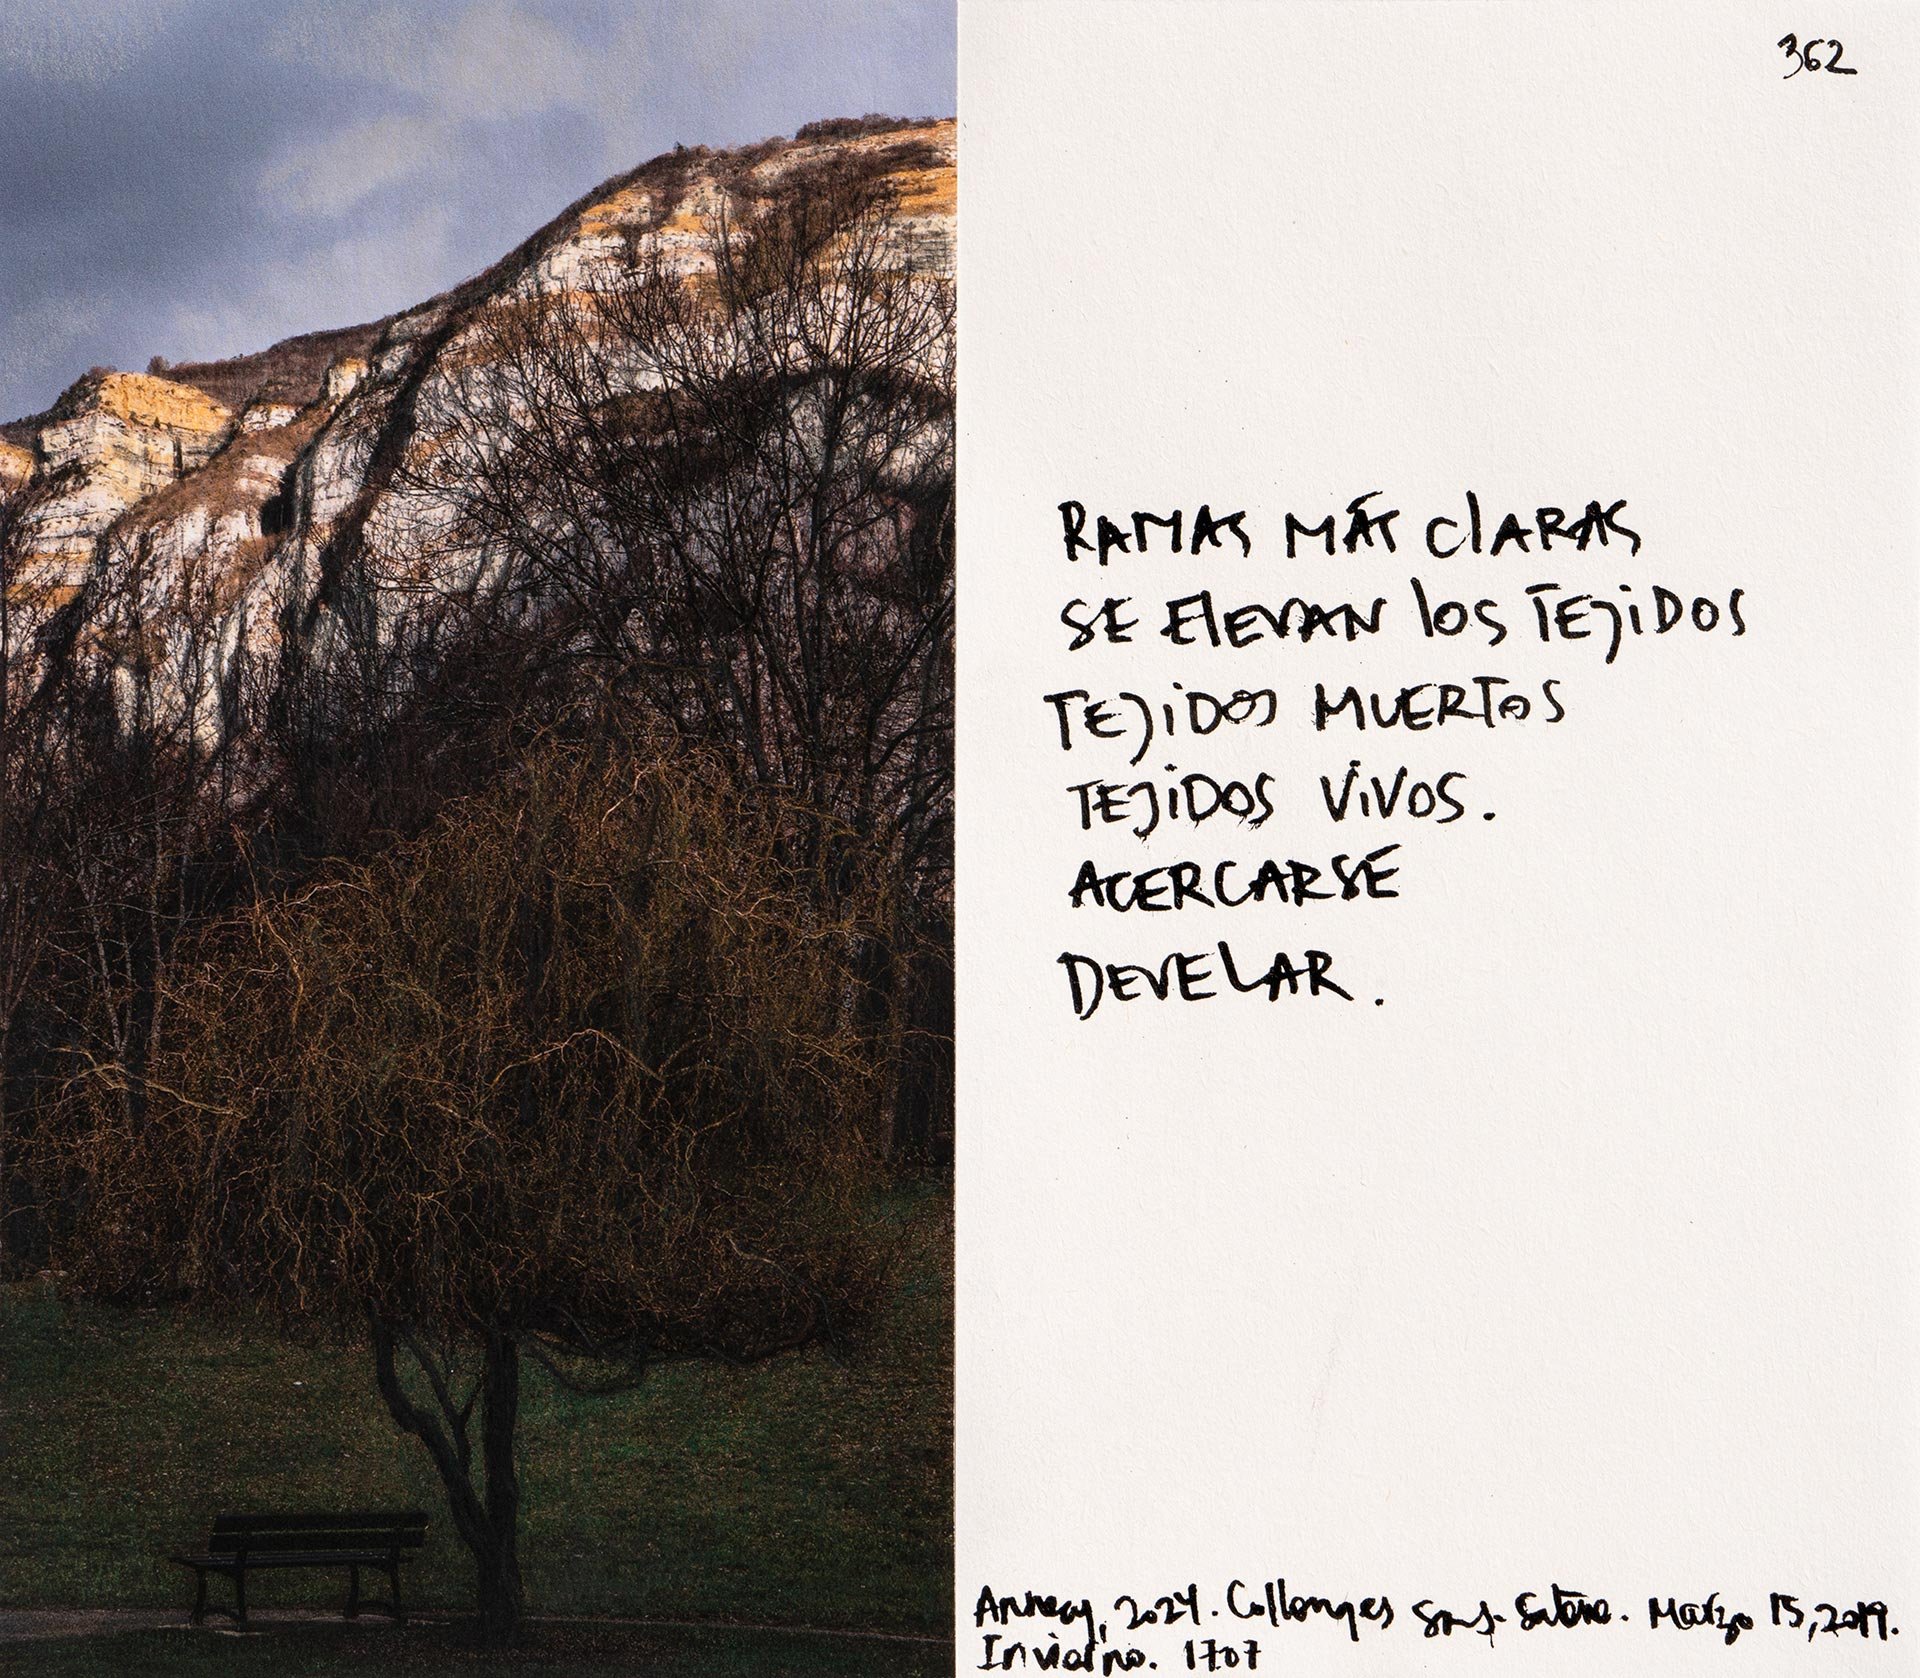 362
RAMAS MÁS CLARAS
SE ELEVAN LOS TEJIDOS
TEJIDOS MUERTOS
TEJIDOS VIVOS.
ACERCARSE
DEVELAR.
Annecy, 2024. Collonges Sous-Salève. Marzo 15, 2019.
Invierno. 1707